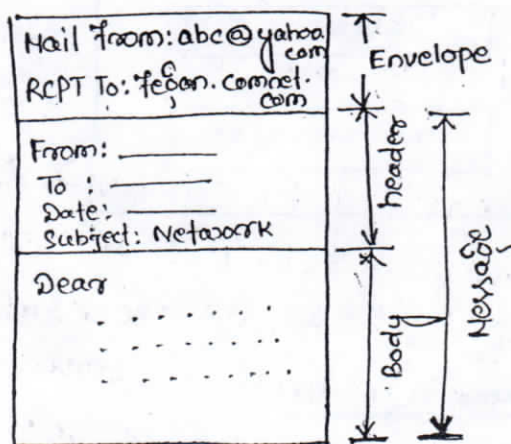 Mail From: abc@yahoo
com
RCPT To: . comnet.
com
Envelope
From:
To :
Date:
Subject: Network
header
Dear
Body
Message